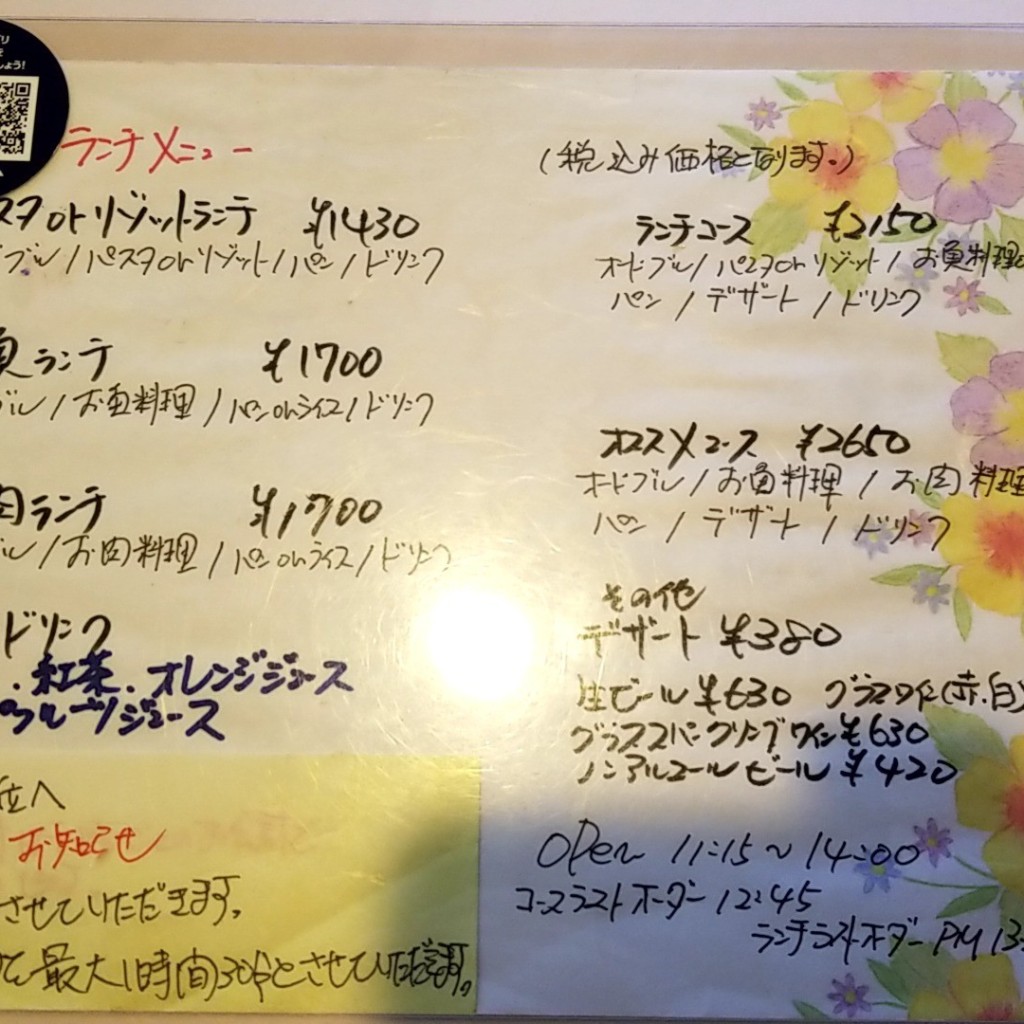 ょう!
ランチメニュー
(税込み価格となります。)
スタorリゾットランチ ¥1430
ブル/パスタorリゾット/パン/ドリンク
魚ランチ ¥1700
ブル/お魚料理/パンorライス/ドリンク
肉ランチ ¥1700
ブル/お肉料理/パンorライス/ドリンク
ドリンク
・紅茶・オレンジジュース
フルーツジュース
ランチコース ¥2150
オードブル/パスタorリゾット/お魚料理
パン/デザート/ドリンク
オススメコース ¥2650
オードブル/お魚料理/お肉料理
パン/デザート/ドリンク
その他
デザート ¥380
生ビール ¥630 グラスワイン(赤.白)
グラススパークリングワイン ¥630
ノンアルコールビール ¥420
Open 11:15~14:00
コースラストオーダー 12:45
ランチラストオーダー PM 13
位へ
お知らせ
させていただきます。
最大1時間30分とさせていただきます。